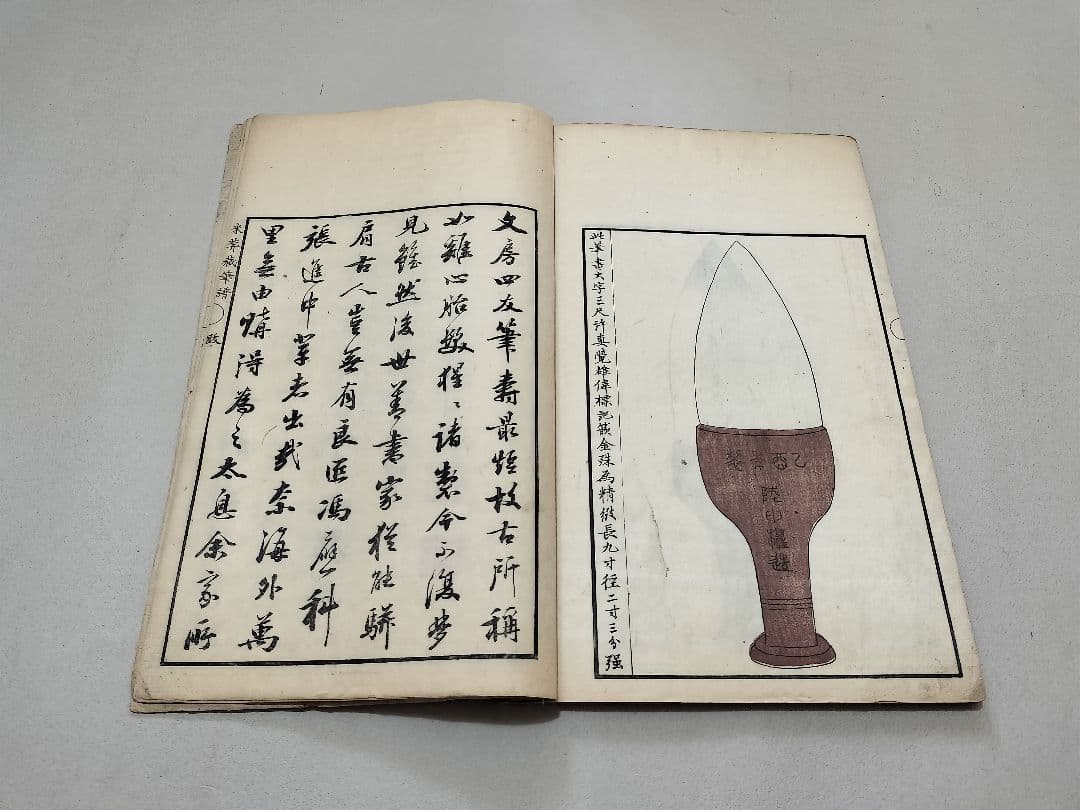 此筆書大字三尺許真覺雄偉標記嵌金殊為精緻長九寸徑二寸三分强
乙酉
文房四友筆壽最短故古所稱
如雞心胎髮猩〻諸製今不復夢
見雖然後世善書家猶能駢
肩古人豈無有良匠馮應科
張進中輩者出哉奈海外萬
里無由購得為之太息余家所
米菴蔵筆譜 跋